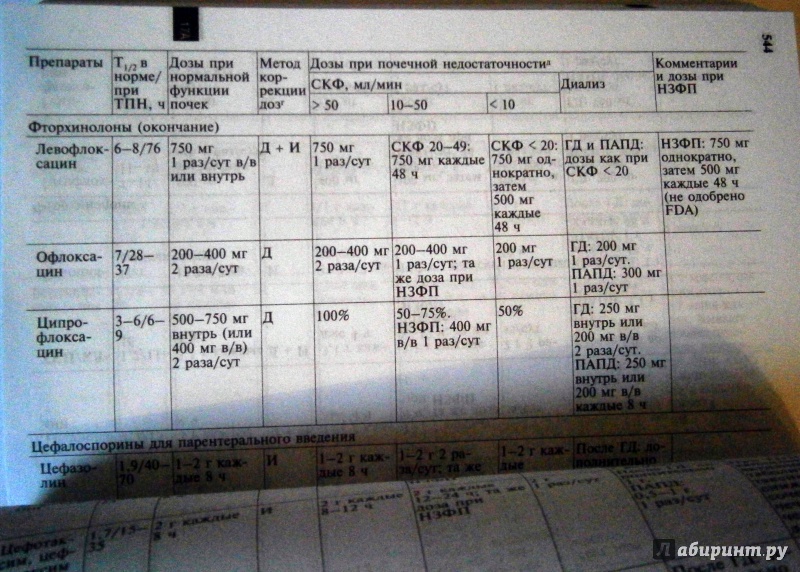 17А
544
Препараты
T1/2 в норме/ при ТПН, ч
Дозы при нормальной функции почек
Метод кор- рекции дозᵍ
Дозы при почечной недостаточностиᵃ
Комментарии и дозы при НЗФП
СКФ, мл/мин
Диализ
> 50
10–50
< 10
Фторхинолоны (окончание)
Левофлок-
сацин
6–8/76
750 мг
1 раз/сут в/в
или внутрь
Д + И
750 мг
1 раз/сут
СКФ 20–49:
750 мг каждые
48 ч
СКФ < 20:
750 мг од-
нократно,
затем
500 мг
каждые
48 ч
ГД и ПАПД:
дозы как при
СКФ < 20
НЗФП: 750 мг
однократно,
затем 500 мг
каждые 48 ч
(не одобрено
FDA)
Офлокса-
цин
7/28–
37
200–400 мг
2 раза/сут
Д
200–400 мг
2 раза/сут
200–400 мг
1 раз/сут; та
же доза при
НЗФП
200 мг
1 раз/сут
ГД: 200 мг
1 раз/сут.
ПАПД: 300 мг
1 раз/сут
Ципро-
флокса-
цин
3–6/6–
9
500–750 мг
внутрь (или
400 мг в/в)
2 раза/сут
Д
100%
50–75%.
НЗФП: 400 мг
в/в 1 раз/сут
50%
ГД: 250 мг
внутрь или
200 мг в/в
2 раза/сут.
ПАПД: 250 мг
внутрь или
200 мг в/в
каждые 8 ч
Цефалоспорины для парентерального введения
Цефазо-
лин
1,9/40–
70
1–2 г каж-
дые 8 ч
И
1–2 г каж-
дые 8 ч
1–2 г 2 ра-
за/сут; та же
1–2 г каж-
дые
После ГД: до-
полнительно
Цефотак-
сим, цеф-
1,7/15–
35
2 г каждые
8 ч
И
2 г каждые
8–12 ч
2 г каждые
12–24 ч; та же
доза при
НЗФП
1 раз/сут
ПАПД:
0,5–1 г
1 раз/сут
После ГД:
Лабиринт.ру